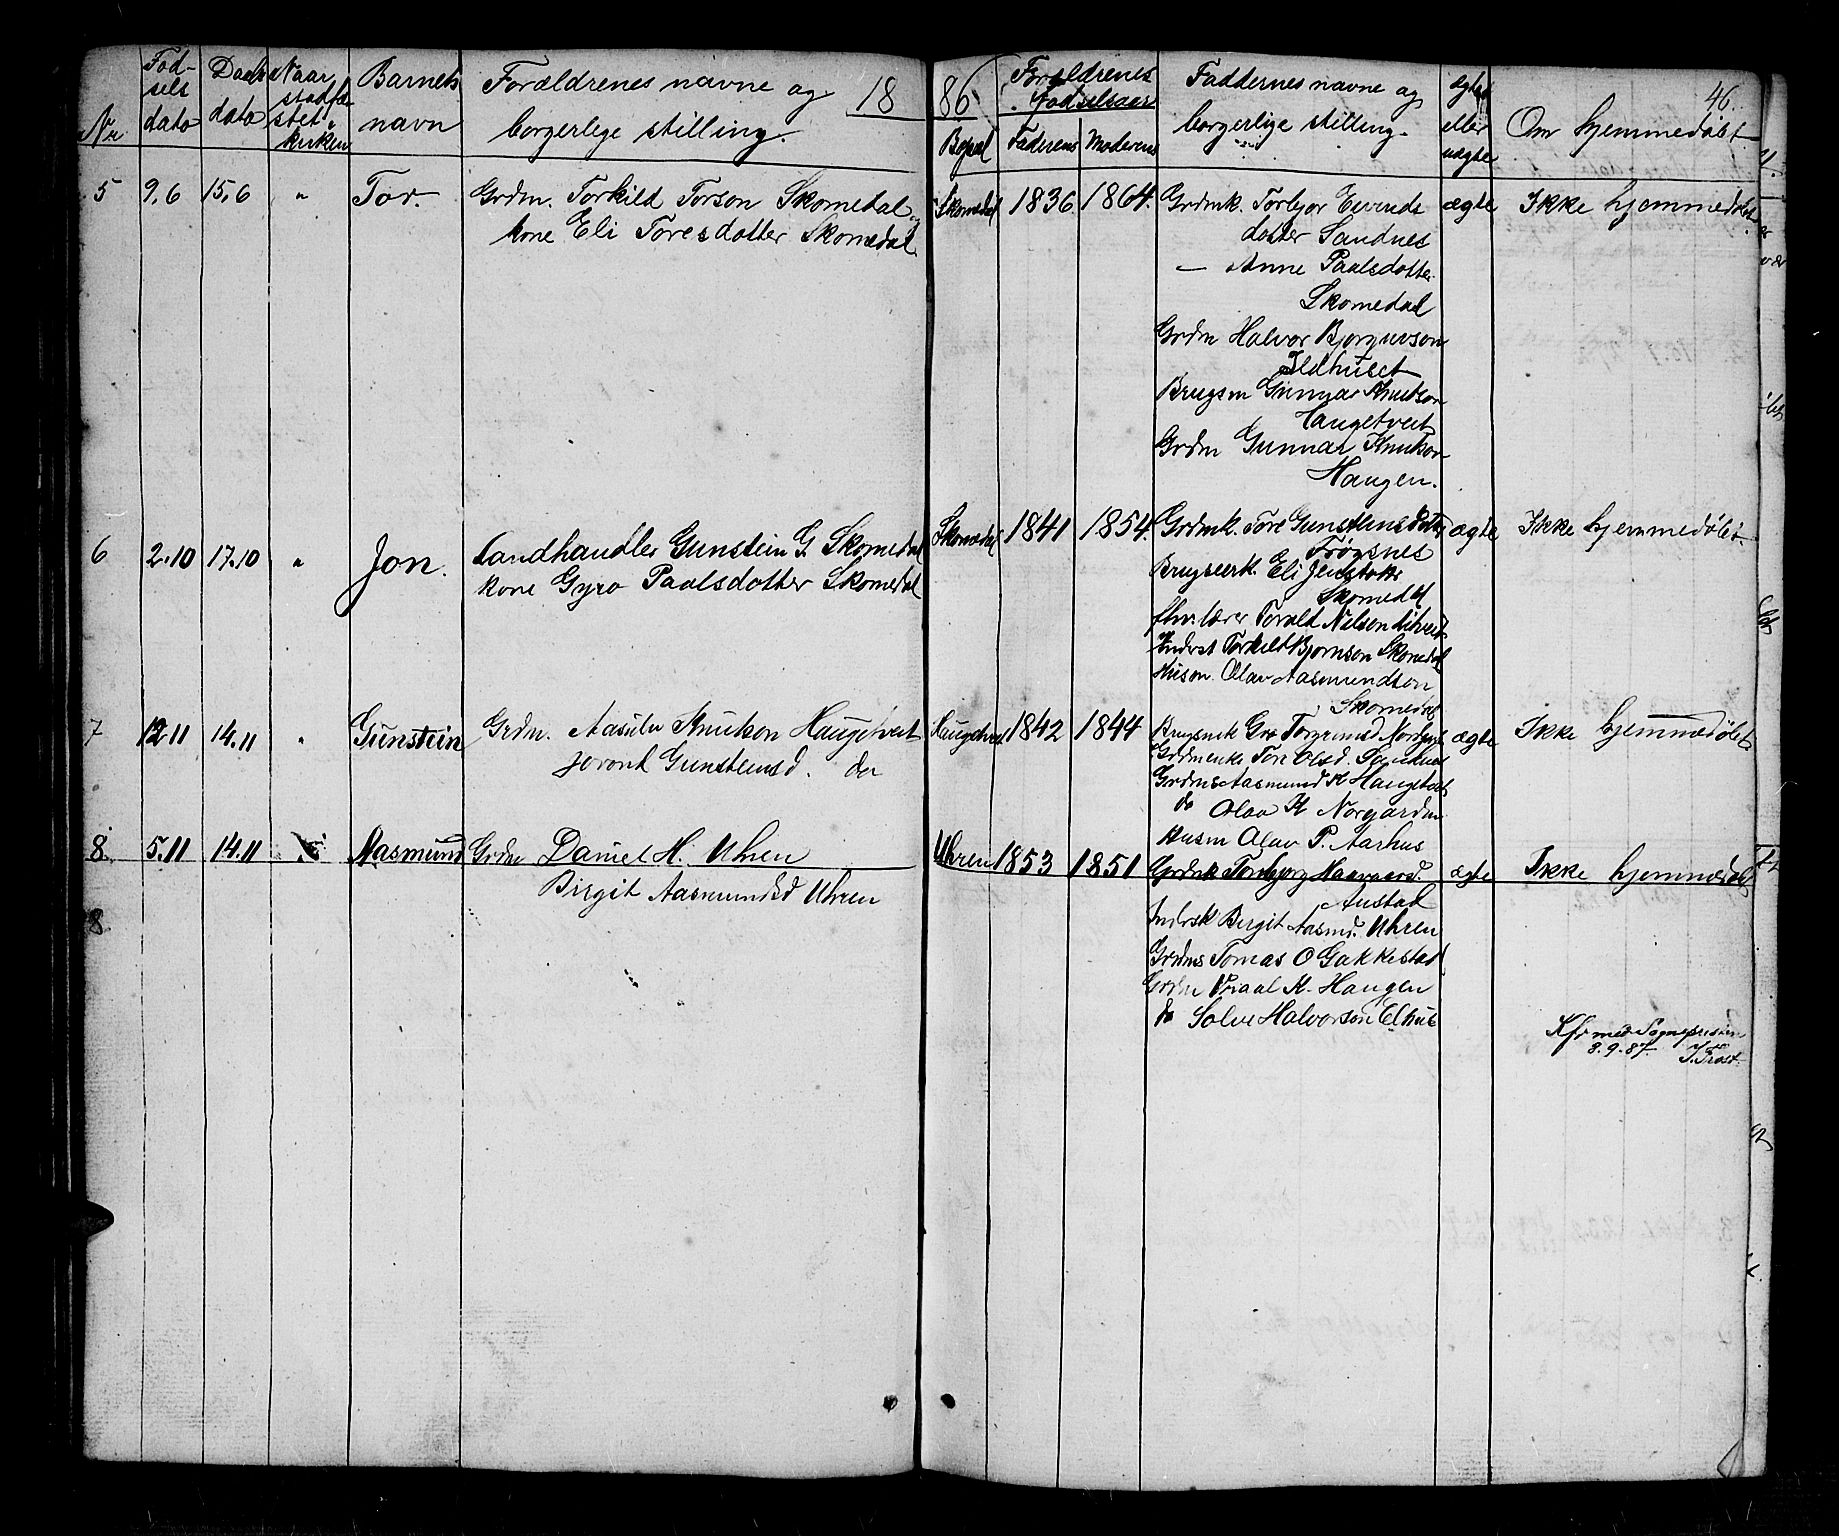 Nr
Fød-
sels
dato
Daabs
dato
Naar
stadfæ
stet i
kirken
Barnets
navn
Forældrenes navne og
borgerlige stilling.
18
86
Bopæl
Forældrenes
Fødselsaar
Faderens
Moderens
Faddernes navne og
borgerlige stilling.
ægte
eller
uægte
Om hjemmedøbt
46.
5 9.6 15.6 " Tor. Grdm. Torkild Torson Skomedal og
kone Eli Toresdotter Skomedal
Skomedal 1836 1864. Grdmk. Torbjor Eivinds
dotter Sandnes
— Anne Paalsdotter
Skomedal
Grdm Halvor Bjorguvson
Ildhuset
Brugsm Gunnar Knutson
Haugetveit
Grdm Gunnar Knutson
Haugen.
ægte Ikke hjemmedøbt.
6 2.10 17.10 " Jon. Landhandler Gunstein G. Skomedal
kone Gyro Paalsdotter Skomedal
Skomedal 1841 1854. Grdmk. Tore Gunsteinsdotter
Trøgsnes
Eli
Skomedal
lærer Torald Nilson
Inderst Torkild Bjornson Skomedal
Husm. Olav Aasmundson
Skomedal
ægte Ikke hjemmedøbt.
7 12.11 14.11 " Gunstein Grdm. Aasulv Knutson Haugetveit
Joront Gunsteinsd. do
Haugetveit 1842 1844 Gro Torgrimsd Norgard
Grdmenke Tore Olsd. Sandnes
Grdms Aasmund K Haugetveit
do Olav K Norgarden
Husm Olav P. Aarhus
ægte Ikke hjemmedøbt
8. 5.11 14.11 Aasmund Grdm Daniel H. Uhren
Birgit Aasmundsd Uhren
8
Uhren 1853 1851 Grdmk Torbjorg Haavaarsd.
Austad
Indrsk Birgit Aasmd. Uhren
Grdms Tomas O Gakkestad
Grdm K. Haugen
do Salve Halvorson Elhus
ægte Ikke hjemmedøbt
Kfr med Sognepresten
8.9.87.